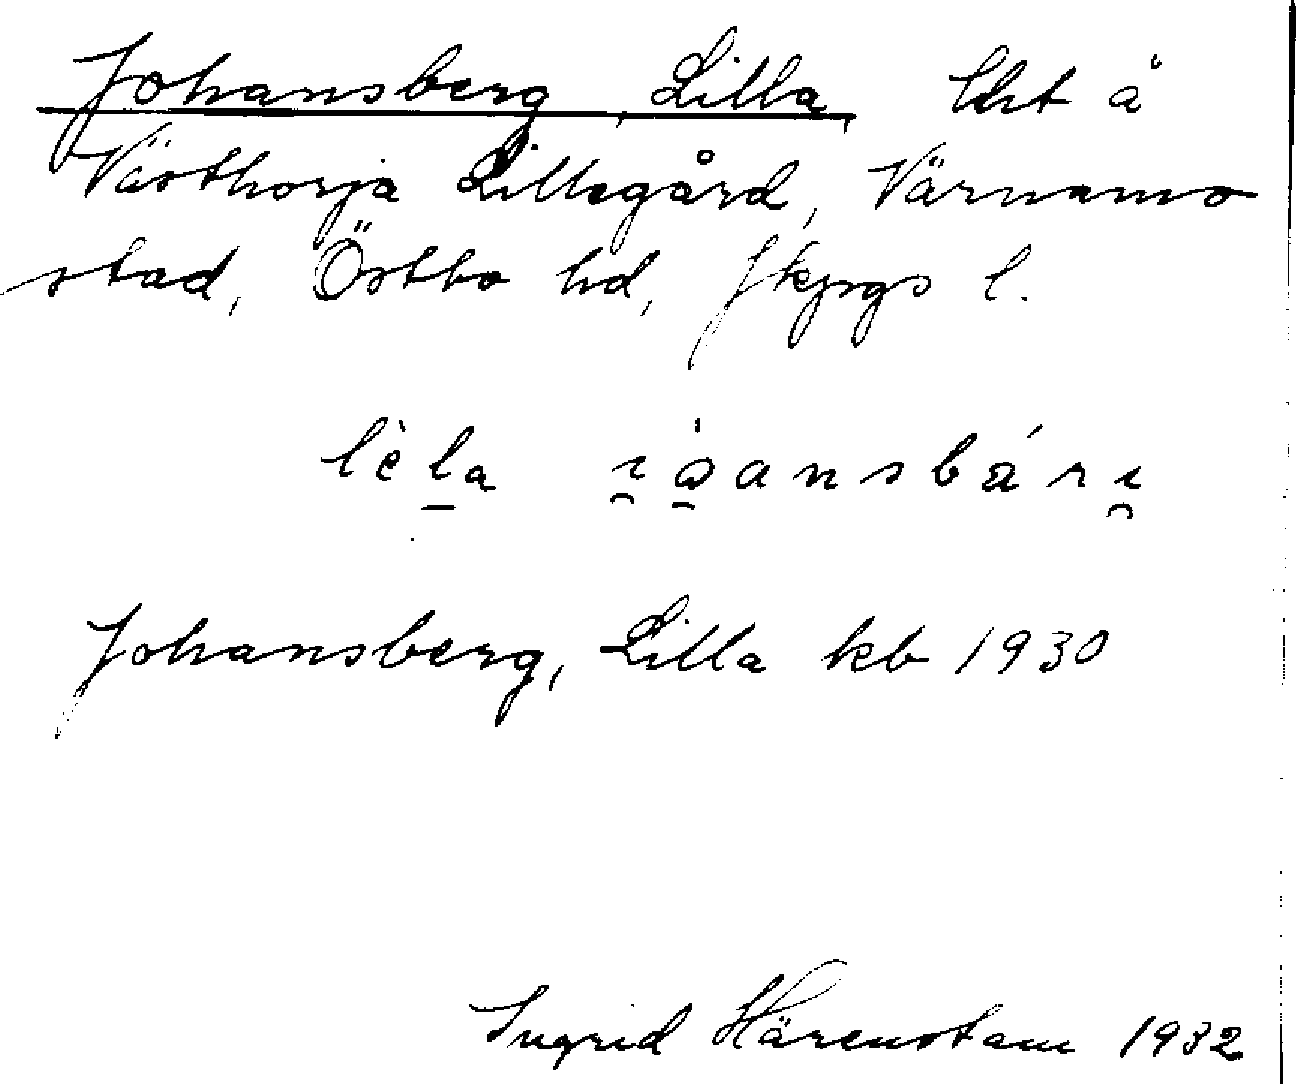 Johansberg, Lilla, lht å
Västhorja Lillegård, Värnamo
stad, Östbo hd, Jkpgs l.
lèla ı̯ɔ̀ansbárı̯
Johansberg, Lilla kb 1930
Ingrid Härenstam 1932